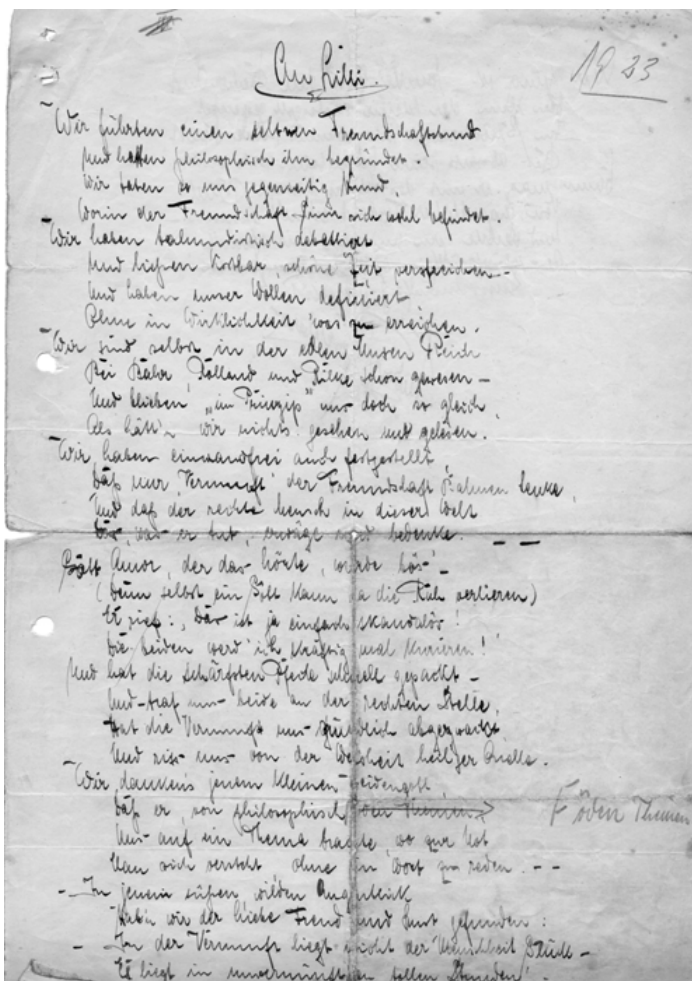 An Lilli.
1923
Wir führten einen seltnen Freundschaftsbund
Und hatten philosophisch ihn begründet.
Wir taten es uns gegenseitig kund,
Worin der Freundschaft Sinn sich wohl befindet.
Wir haben talmudistisch debattiert
Und ließen kostbar, schöne Zeit verstreichen –
Und haben unser Wollen definiert
Ohne in Wirklichkeit 'was zu erreichen.
Wir sind selbst in der edlen Musen Reich
Bei Bahr, Rolland und Rilke schon gewesen –
Und blieben „im Prinzip" uns doch so gleich,
Als hätt'n wir nichts gesehen und gelesen.
Wir haben einwandfrei auch festgestellt,
Daß nur 'Vernunft' der Freundschaft Rahmen lenke,
Und daß der rechte Mensch in dieser Welt
Das, was er tut, erwäge und bedenke. – –
Gott Amor, der das hörte, wurde bös' –
(Denn selbst ein Gott kann ja die Ruh verlieren)
Er rief: „Das ist ja einfach skandulös!
Die beiden werd' ich kräftig mal kurieren!"
Und hat die schärfsten Pfeile schnell gepackt –
Und traf uns beide an der rechten Stelle,
Hat die Vernunft uns gründlich abgezwackt
Und riss uns von der Weisheit heil'ger Quelle.
Wir danken's jenem kleinen Heidengott,
Daß er, von philosophisch öden Themen,
öden Themen
Uns auf ein Thema brachte, wo zur Not
Man sich versteht ohne ein Wort zu reden. – –
– In jenem süßen, wilden Augenblick
Hab'n wir der Liebe und gefunden:
– In der Vernunft liegt nicht der Menschheit Glück –
Es liegt in unvernünftgen tollen Stunden!